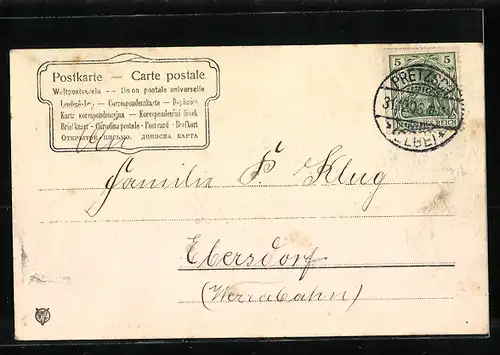 Postkarte — Carte postale
Weltpostverein — Union postale universelle
Levelező-Lap — Correspondenzkarte — Dopisnice
Karta korespondencyjna — Korespondenční lístek
Briefkaart — Cartolina postale — Post card — Brefkort
ОТКРЫТОЕ ПИСЬМО. ДОПИСНА КАРТА
5 5
PRETZSCH
(ELBE)
REICH
Familie F. Klug
Ebersdorf
(Werrabahn)